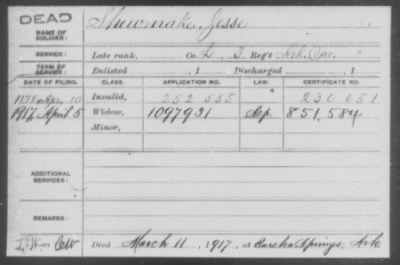 DEAD
NAME OF SOLDIER: Shewmaker, Jesse
SERVICE: Late rank, Co. L, 3 Reg't Ark. Cav.
TERM OF SERVICE: Enlisted , 1 Discharged , 1
DATE OF FILING. CLASS. APPLICATION NO. LAW. CERTIFICATE NO.
Apr. 10 Invalid, 252 555 230 651
1917 April 5 Widow, 1097931 Sep. 851,584
Minor,
ADDITIONAL SERVICES:
REMARKS:
Died March 11, 1917, at Eureka Springs, Ark